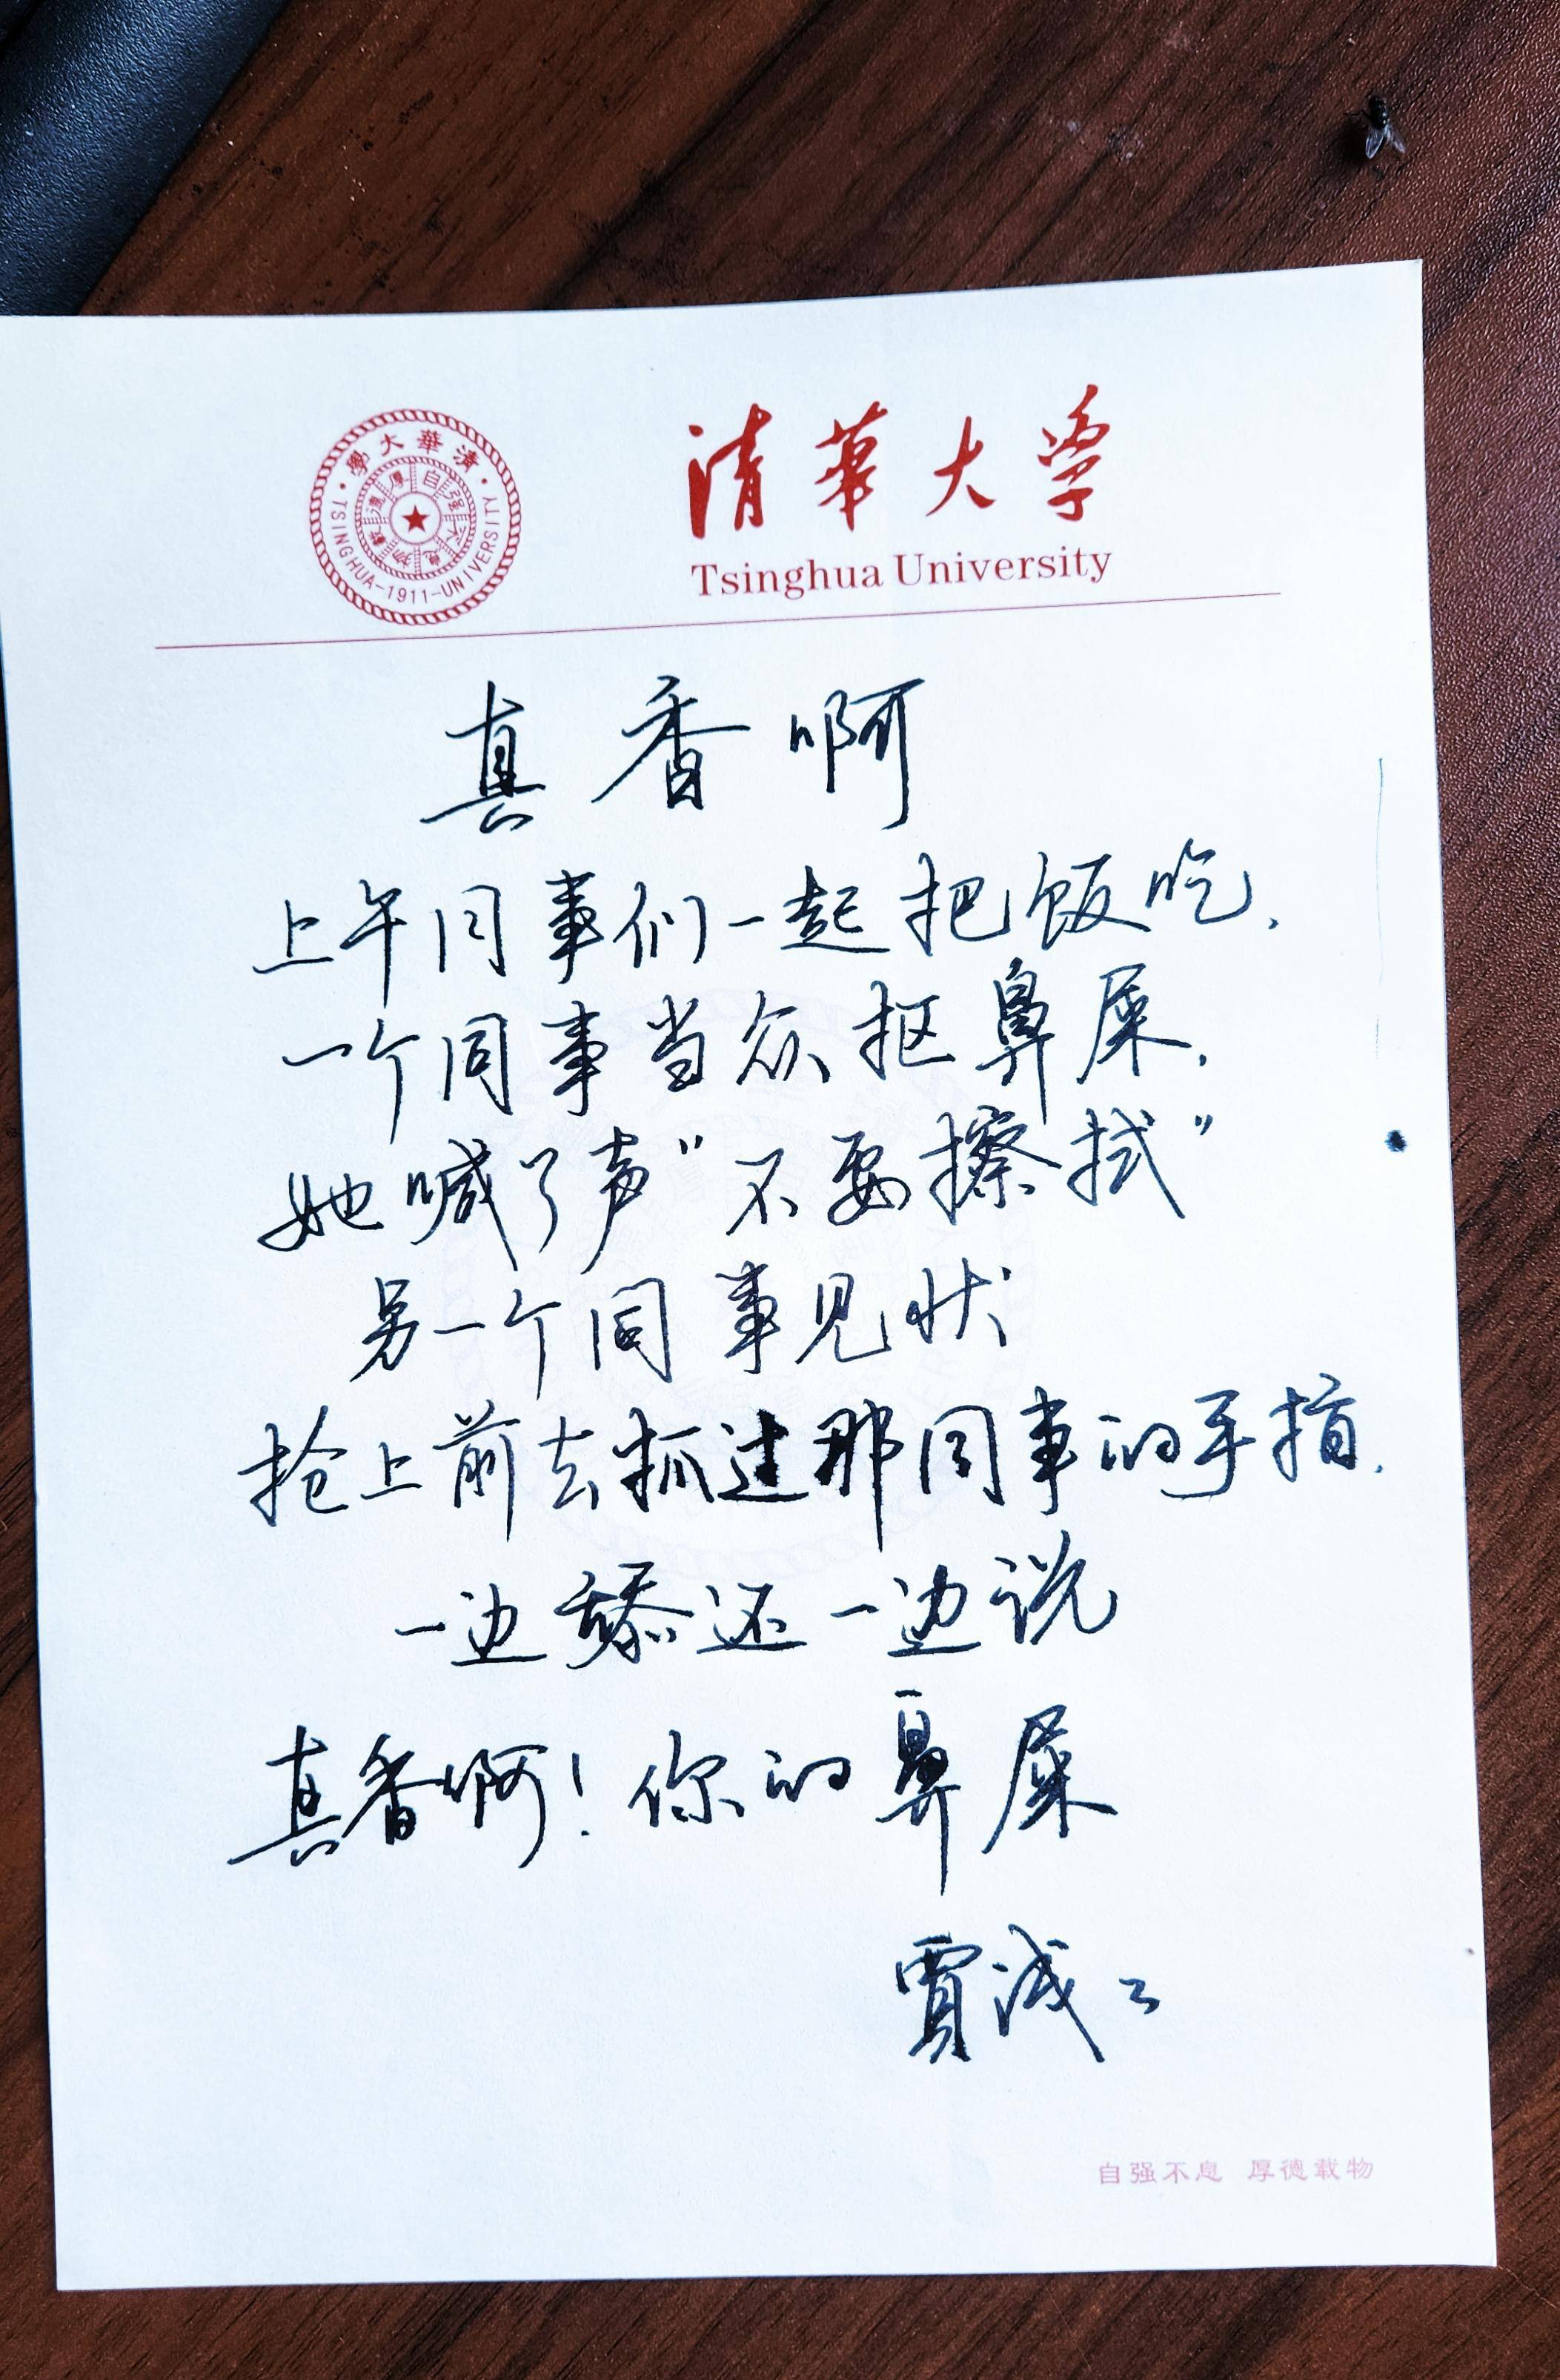 清華大学
Tsinghua University
清華大學
TSINGHUA-1911-UNIVERSITY
自强不息
厚德載物
真香啊
上午同事们一起把饭吃.
一个同事当众抠鼻屎.
她喊了声"不要擦拭"
另一个同事见状
抢上前去抓过那同事的手指.
一边舔还一边说
真香啊!你的鼻屎
賈浅々
自强不息 厚德载物